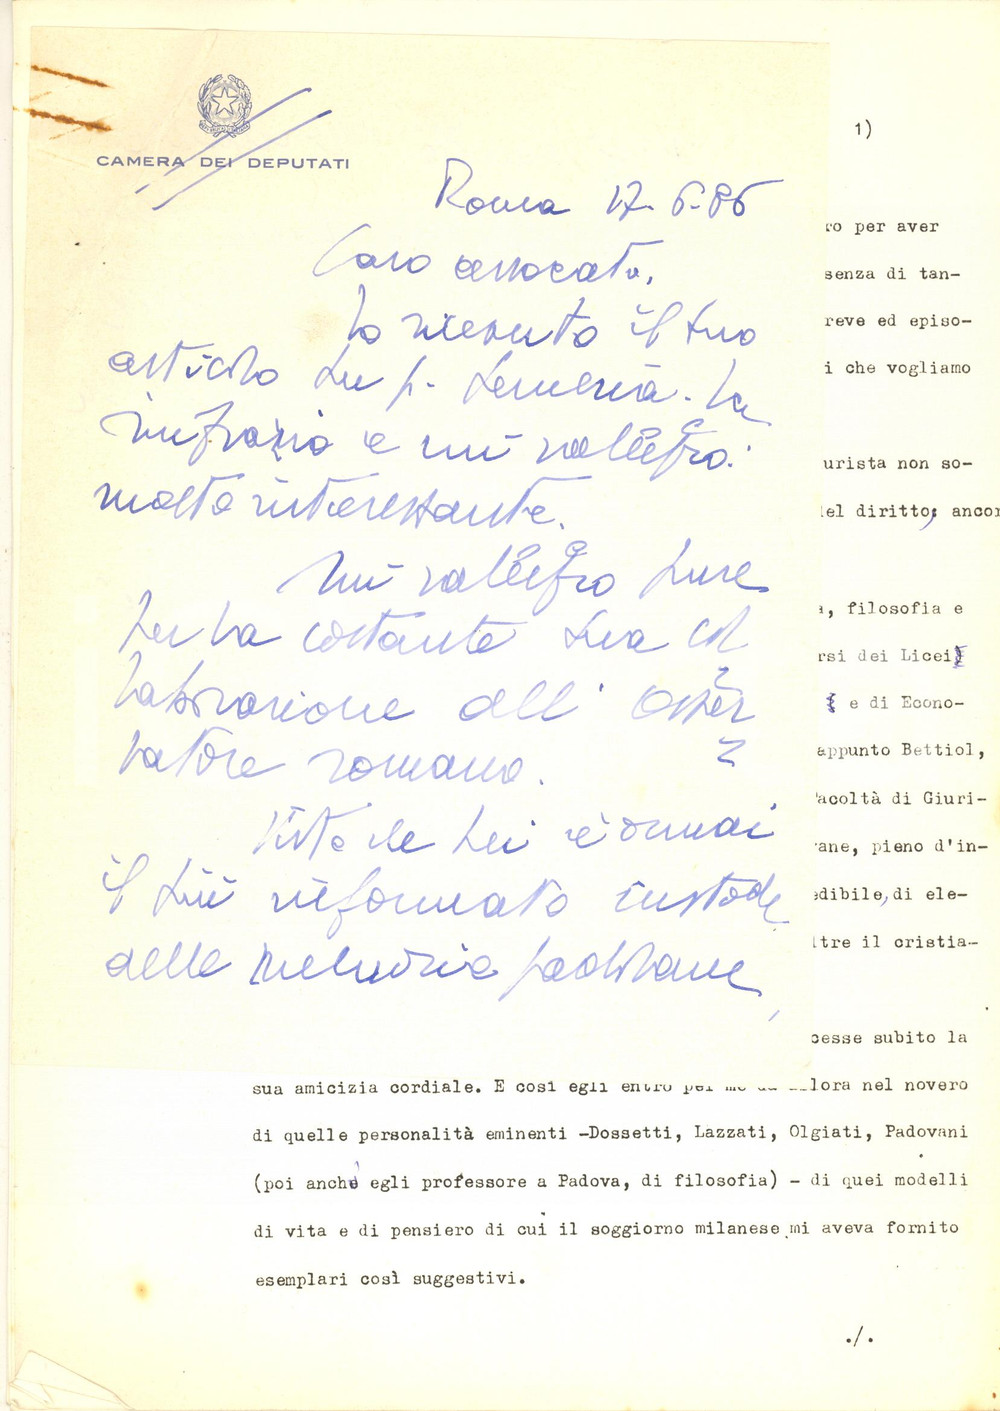 CAMERA DEI DEPUTATI
Roma 17.6.86
Caro avvocato,
ho ricevuto il suo
articolo su p. Semeria. La
ringrazio e mi rallegro:
molto interessante.
Mi rallegro pure
per la costante sua col
laborazione all'Osser
vatore romano.
Lei è ormai
il più informato custode
delle memorie padovane,
1)
ro per aver
senza di tan-
reve ed episo-
i che vogliamo
urista non so-
del diritto; ancor
a, filosofia e
rsi dei Licei
e di Econo-
appunto Bettiol,
Facoltà di Giuri-
rane, pieno d'in-
edibile, di ele-
ltre il cristia-
cesse subito la
sua amicizia cordiale. E così egli entrò per me da allora nel novero
di quelle personalità eminenti -Dossetti, Lazzati, Olgiati, Padovani
(poi anchè egli professore a Padova, di filosofia) - di quei modelli
di vita e di pensiero di cui il soggiorno milanese mi aveva fornito
esemplari così suggestivi.
./.